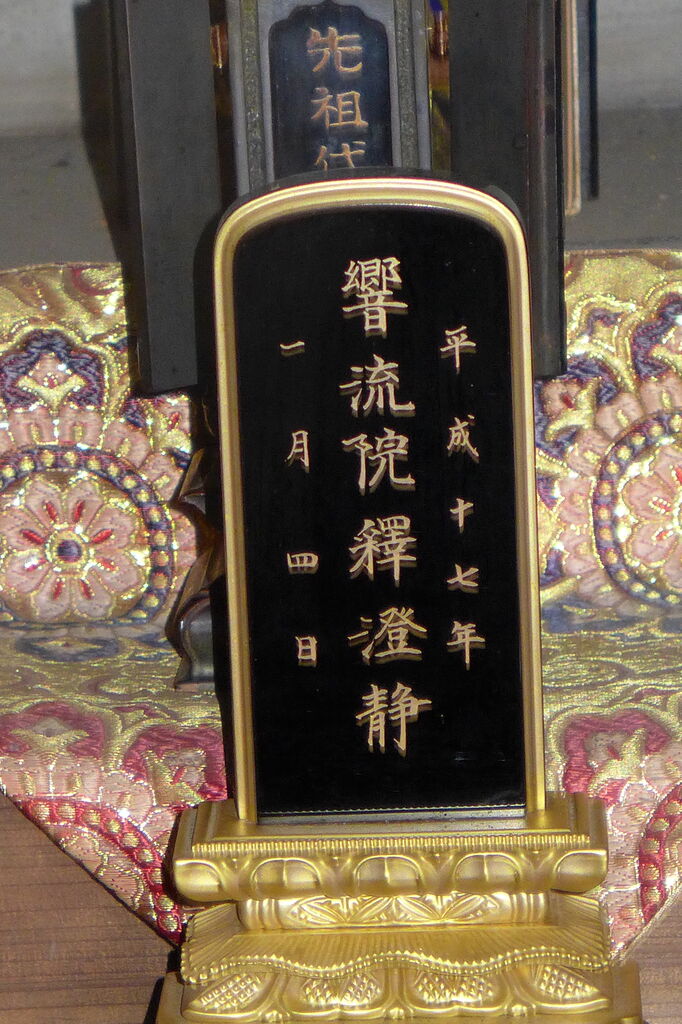 先祖代
平成十七年
響流院釋澄静
一月四日